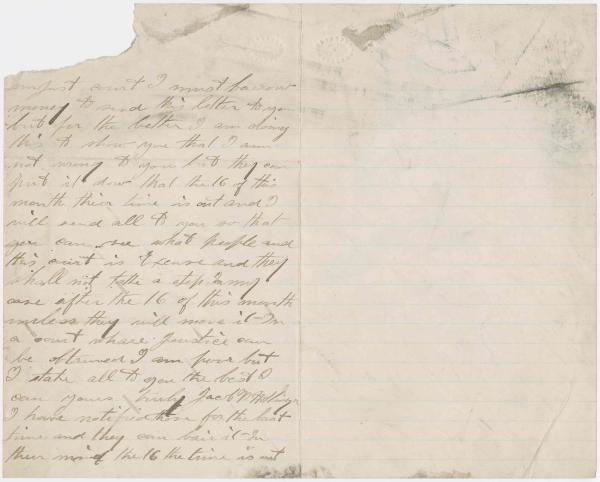 unjust court I must borrow
money to send this letter to you
but for the better I am doing
this to show you that I am
not wrong to you but they can
put it dow that the 16 of this
month their time is out and I
will send all to you so that
you can see what people and
this court is and they
shall not take a step In my
case after the 16 of this month
unless they will move it In
a court whare justice can
be obtained I am poor but
I state all to you the best I
can yours truly Jacob
I have notified them for the last
time and they can bair it In
their mind the 16 the time is out